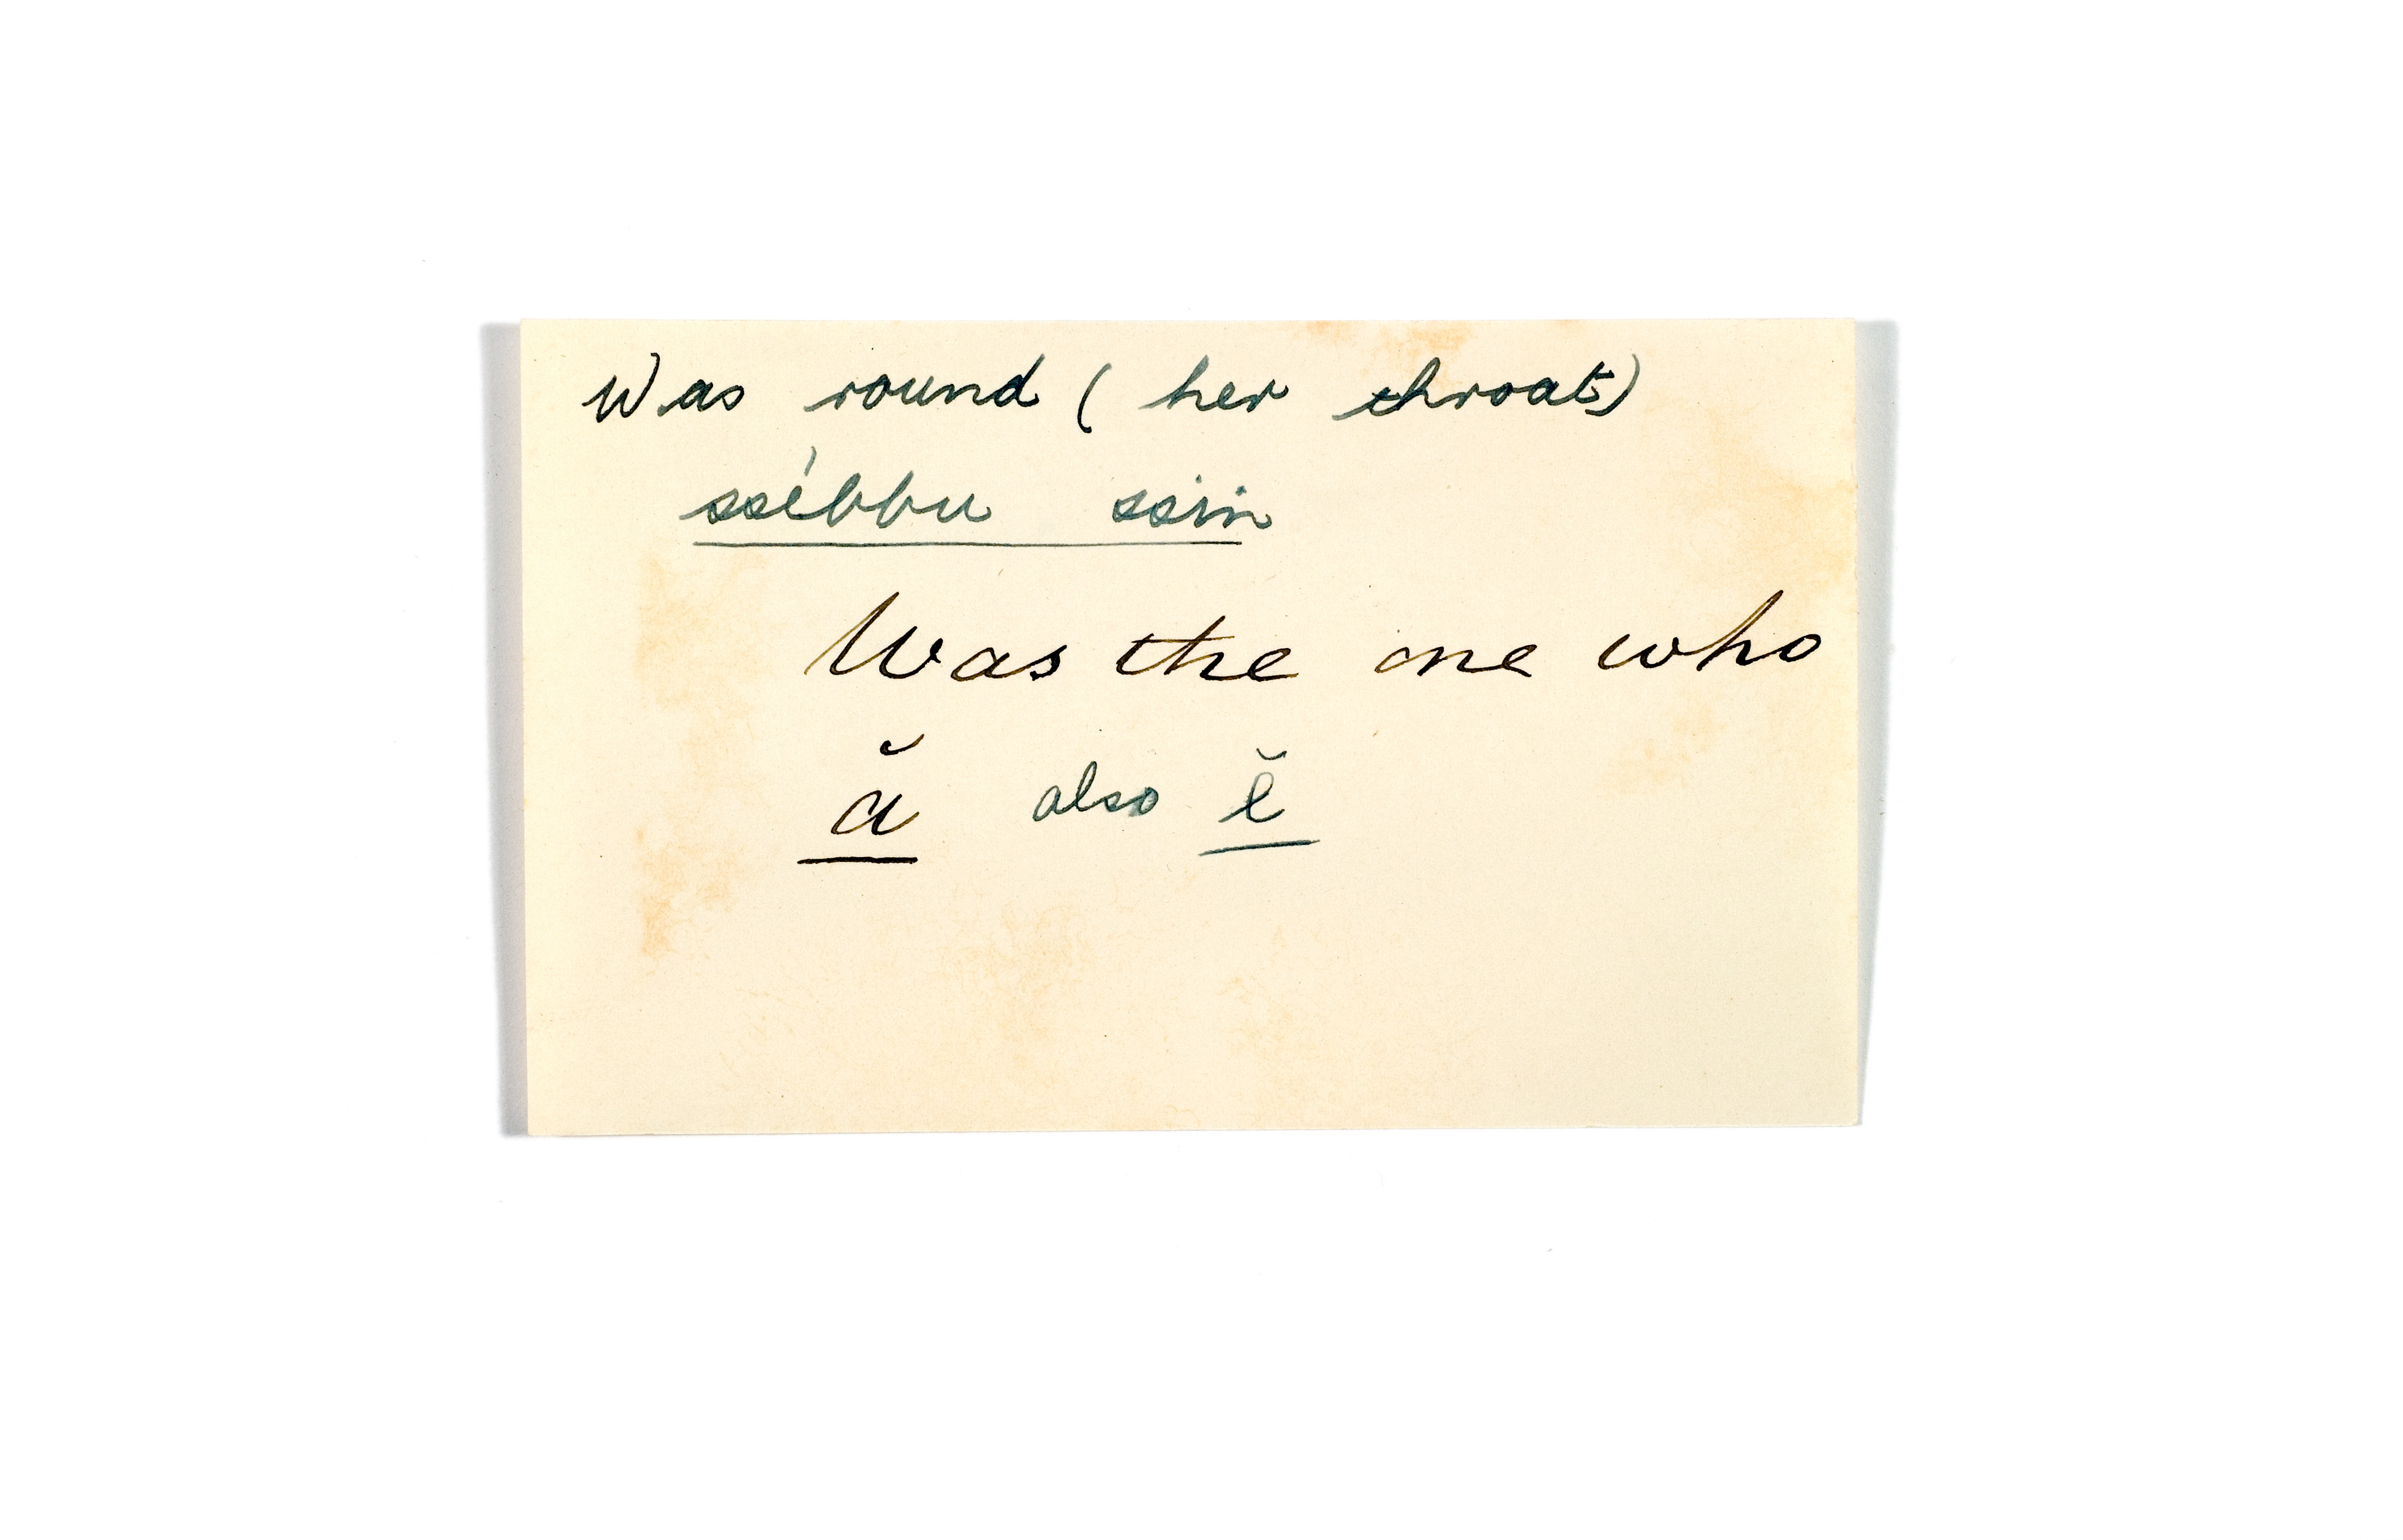 Was round (her throat)
ssébbu ssin
Was the one who
ă also ĕ